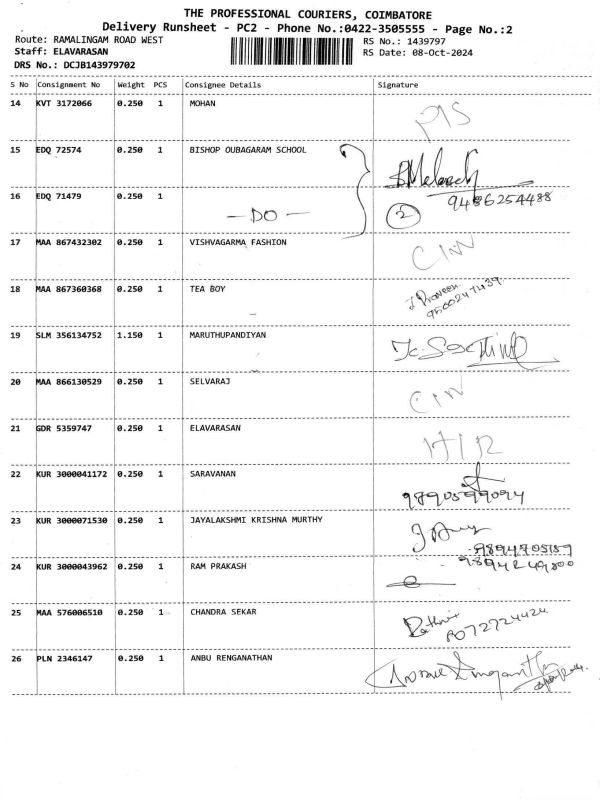 THE PROFESSIONAL COURIERS, COIMBATORE
Delivery Runsheet - PC2 - Phone No.:0422-3505555 - Page No.:2
Route: RAMALINGAM ROAD WEST RS No.: 1439797
Staff: ELAVARASAN RS Date: 08-Oct-2024
DRS No.: DCJB143979702
S No Consignment No Weight PCS Consignee Details Signature
14 KVT 3172066 0.250 1 MOHAN
15 EDQ 72574 0.250 1 BISHOP OUBAGARAM SCHOOL
16 EDQ 71479 0.250 1 9486254488
- DO - 2
17 MAA 867432302 0.250 1 VISHVAGARMA FASHION
18 MAA 867360368 0.250 1 TEA BOY
9500247439
19 SLM 356134752 1.150 1 MARUTHUPANDIYAN
20 MAA 866130529 0.250 1 SELVARAJ
21 GDR 5359747 0.250 1 ELAVARASAN
22 KUR 3000041172 0.250 1 SARAVANAN
9890599094
23 KUR 3000071530 0.250 1 JAYALAKSHMI KRISHNA MURTHY
9894705159
24 KUR 3000043962 0.250 1 RAM PRAKASH
25 MAA 576006510 0.250 1 CHANDRA SEKAR
26 PLN 2346147 0.250 1 ANBU RENGANATHAN